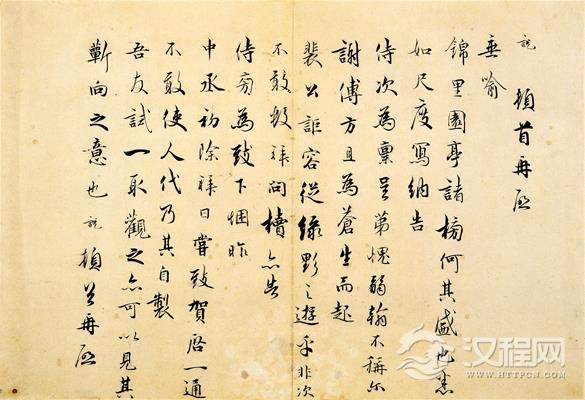 說 頓首再啓
垂喻
錦里園亭諸榜何其盛也悉
如尺度寫納告
侍次為稟呈第愧弱翰不稱尔
謝傅方且為蒼生而起
裴公詎容從綠野之遊乎非次
不敢數拜問牘亦告
侍旁為致下悃昨
中丞初除拜日嘗致賀啓一通
不敢使人代乃其自製
吾友試一取觀之亦可以見其
蘄向之意也 說 頓首再啓
汉程网
HTTPCN.COM